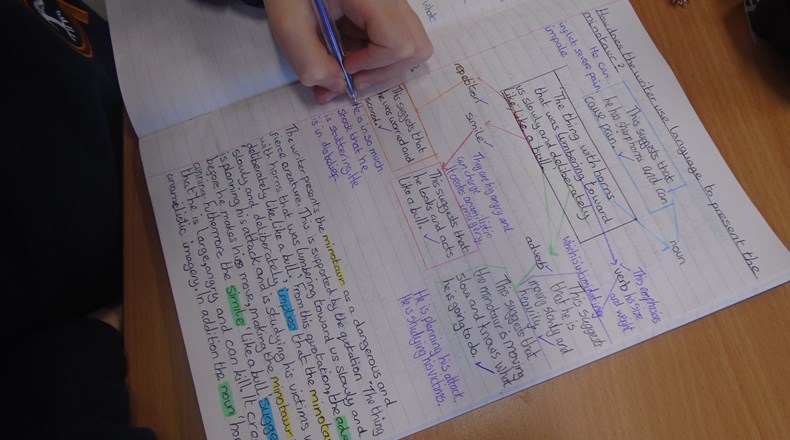 How does the writer use language to present the
minotaur?
He can
inflict severe pain,
impale
This suggests that
he has sharp horns and can
cause pain.
noun
"The thing with horns
that was lumbering toward
us slowly and deliberately
like, like a bull."
repetition
simile
This suggests that
he was worried and
scared.
He is in so much
shock that he
is stuttering. He
is in disbelief.
This suggests that
he looks and acts
like a bull.
adverb
This suggests that
the minotaur is moving
slow and knows what
he is going to do.
He is planning his attack
He is studying his victims.
verb
This emphasises
his size
and weight
This suggests
that he is
moving slowly and
heavily
which is intimidating
The writer presents the minotaur as a dangerous and
fierce creature. This is supported by the quotation "The thing
with horns that was lumbering toward us slowly and
deliberately like, like a bull", from this quotation, the
slowly and deliberately, implies that the
is planning his attack and is studying his victims
before he makes his move, making the minotaur
cunning. Furthermore the simile "like a bull"
that he is large, angry and can kill. It
animalistic imagery. In addition the noun